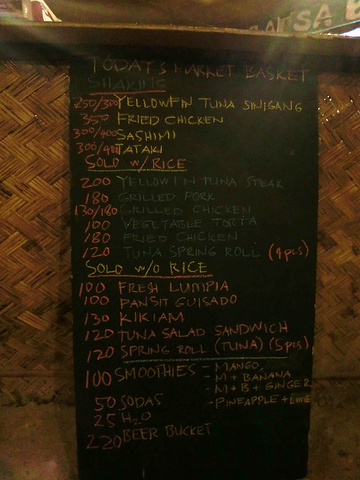 TODAY'S MARKET BASKET
SHAKING
250/350 YELLOWFIN TUNA SINIGANG
350 FRIED CHICKEN
300/400 SASHIMI
300/400 TATAKI
SOLD W/ RICE
200 YELLOWFIN TUNA STEAK
180 GRILLED PORK
130/180 GRILLED CHICKEN
100 VEGETABLE TORTA
180 FRIED CHICKEN
120 TUNA SPRING ROLL (4pcs)
SOLD W/O RICE
100 FRESH LUMPIA
100 PANSIT GUISADO
130 KIKIAM
120 TUNA SALAD SANDWICH
120 SPRING ROLL (TUNA) (5pcs)
100 SMOOTHIES - MANGO
- M + BANANA
- M + B + GINGER
- PINEAPPLE + lime
50 SODAS
25 H2O
220 BEER BUCKET